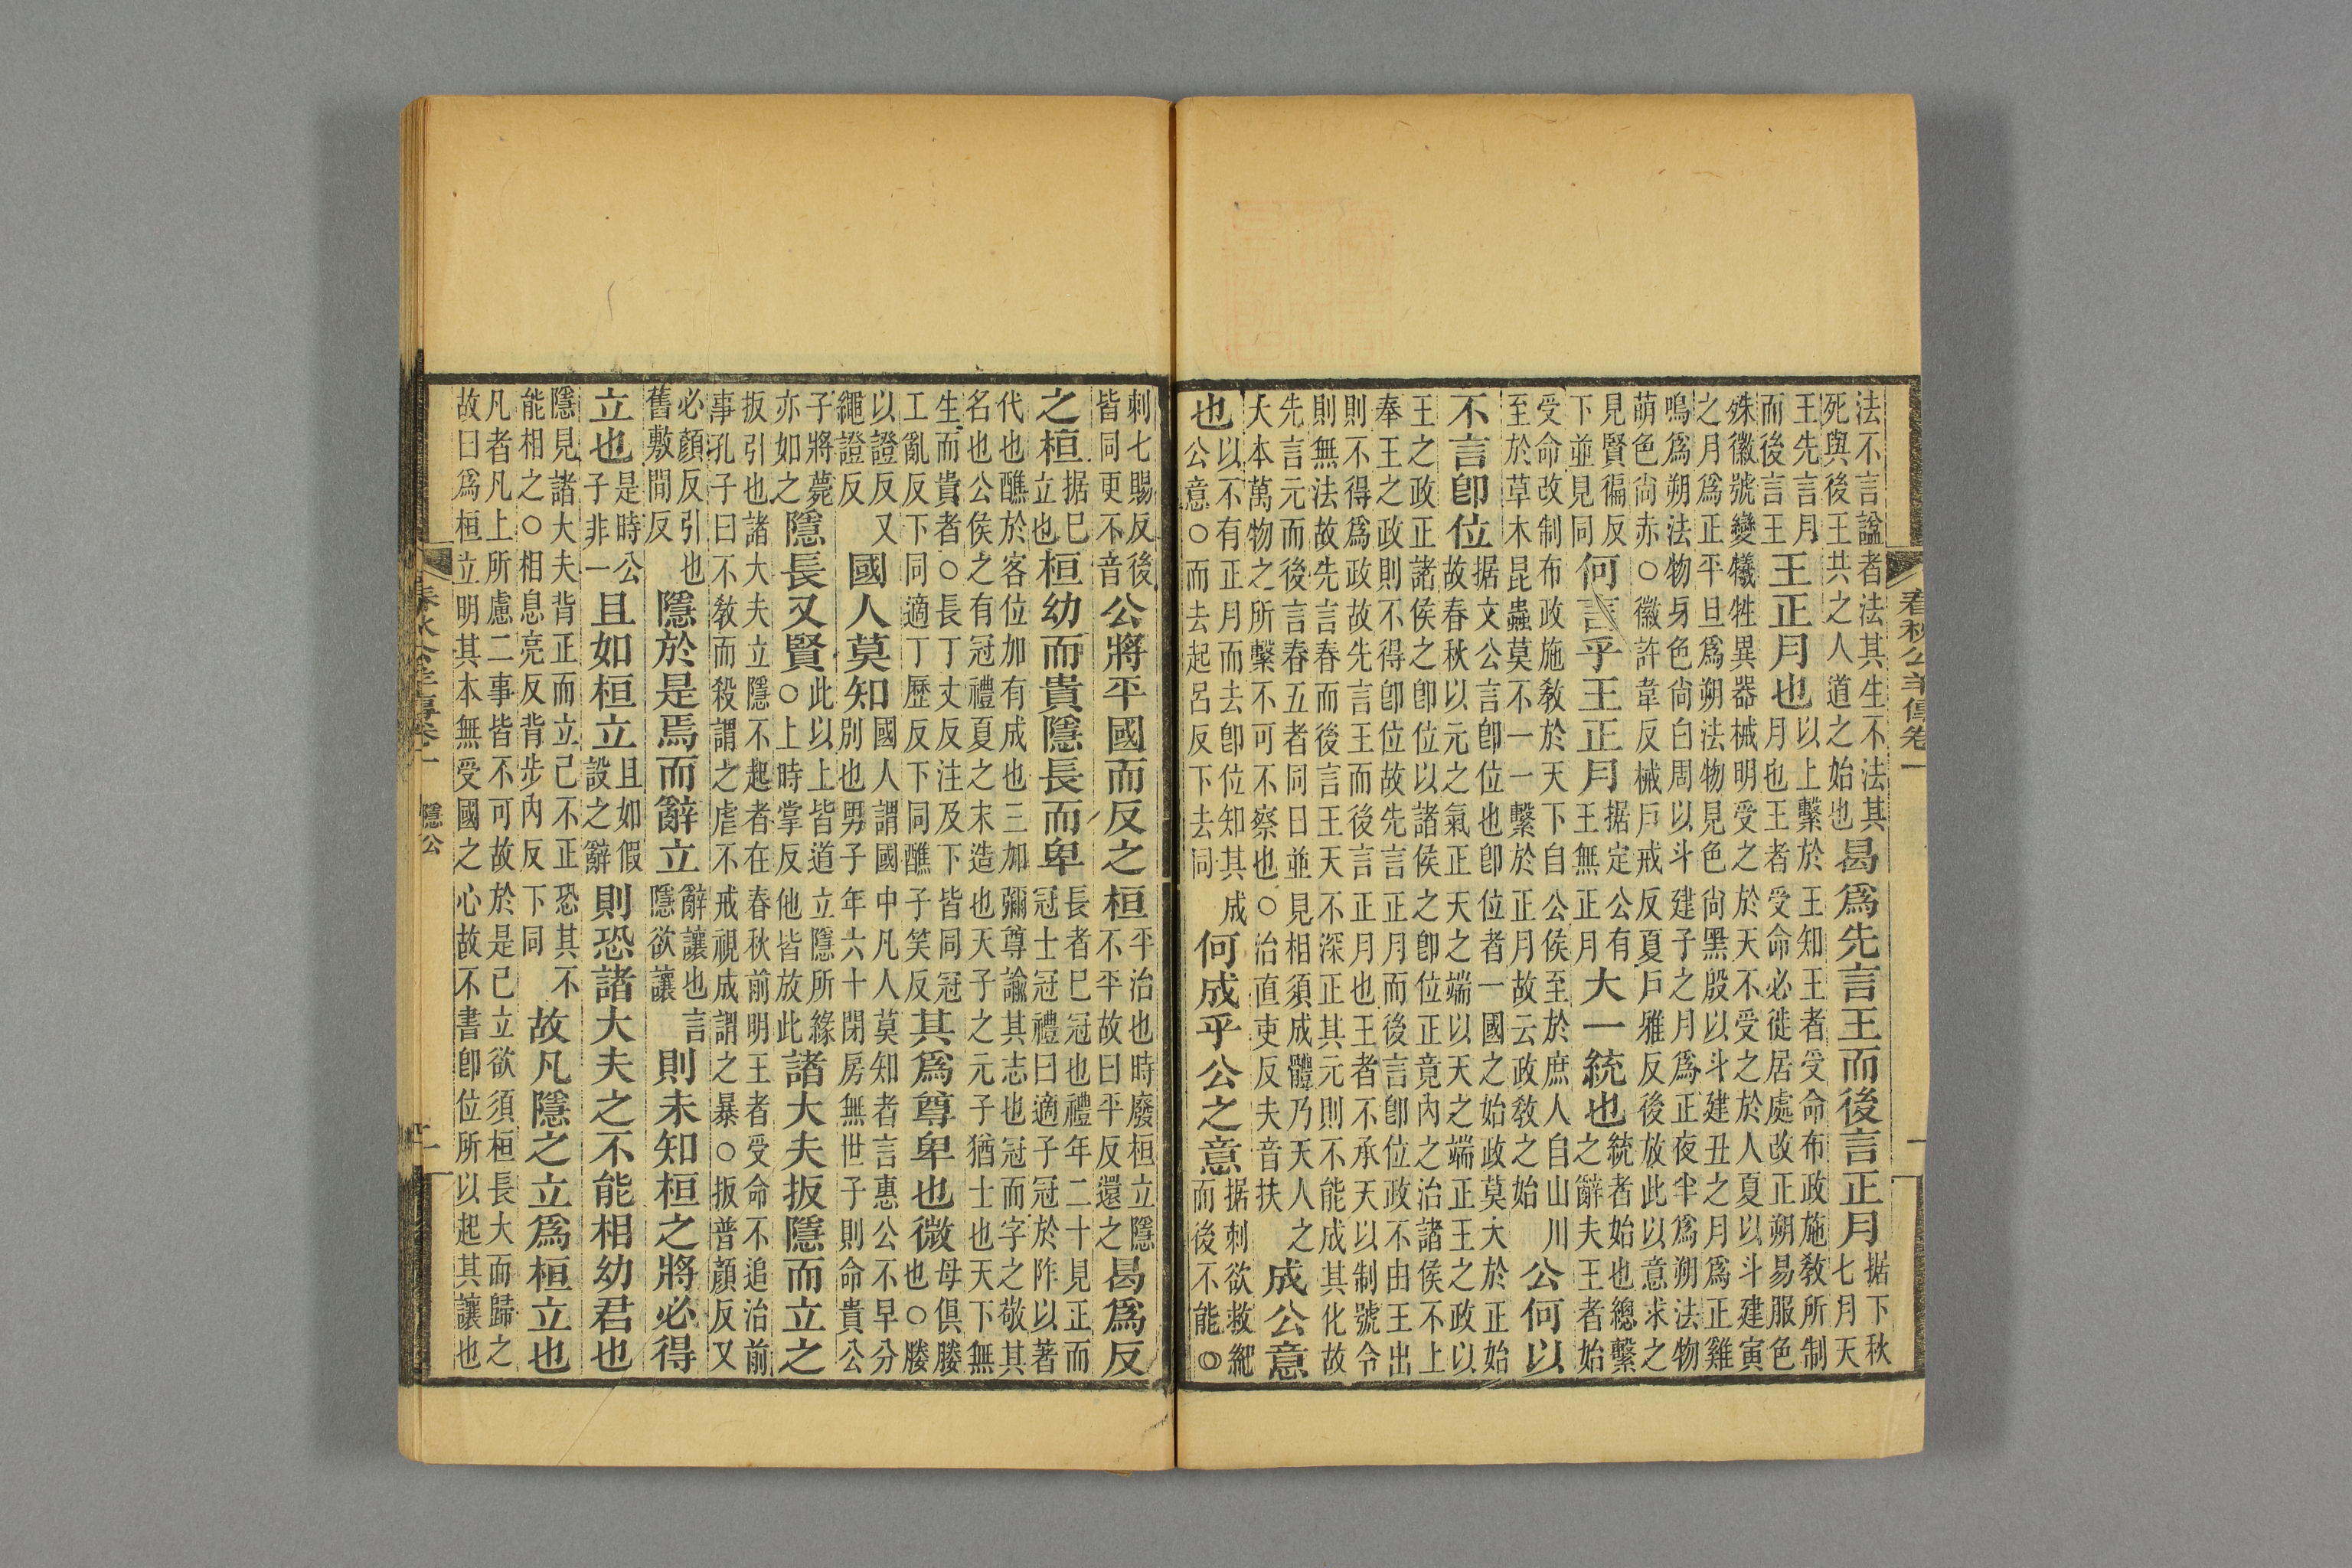 春秋公羊傳卷一
一
法不言諡者法其生不法其死與後王共之人道之始也曷爲先言王而後言正月据下秋七月天
王先言月而後言王王正月也以上繫於王知王者受命布政施敎所制月也王者受命必徙居處改正朔易服色
殊徽號變犧牲異器械明受之於天不受之於人夏以斗建寅之月爲正平旦爲朔法物見色尙黑殷以斗建丑之月爲正雞
鳴爲朔法物身色尙白周以斗建子之月爲正夜半爲朔法物萌色尙赤○徽許韋反械戶戒反夏戶雅反後放此以意求之
見賢徧反下並見同何言乎王正月据定公有王無正月大一統也統者始也總繫之辭夫王者始
受命改制布政施敎於天下自公侯至於庶人自山川至於草木昆蟲莫不一一繫於正月故云政敎之始公何以
不言卽位据文公言卽位也卽位者一國之始政莫大於正始故春秋以元之氣正天之端以天之端正王之政以
王之政正諸侯之卽位以諸侯之卽位正竟內之治諸侯不上奉王之政則不得卽位故先言正月而後言卽位政不由王出
則不得爲政故先言王而後言正月也王者不承天以制號令則無法故先言春而後言王天不深正其元則不能成其化故
先言元而後言春五者同日並見相須成體乃天人之大本萬物之所繫不可不察也○治直吏反夫音扶成公意
也以不有正月而去卽位知其成公意○而去起呂反下去同何成乎公之意据刺欲救紀而後不能○
刺七賜反後皆同更不音公將平國而反之桓平治也時廢桓立隱不平故曰平反還之曷爲反
之桓据已立也桓幼而貴隱長而卑長者已冠也禮年二十見正而冠士冠禮曰適子冠於阼以著
代也醮於客位加有成也三加彌尊諭其志也冠而字之敬其名也公侯之有冠禮夏之末造也天子之元子猶士也天下無
生而貴者○長丁丈反注及下皆同冠工亂反下同適丁歷反下同醮子笑反其爲尊卑也微母俱媵也○媵
以證反又繩證反國人莫知國人謂國中凡人莫知者言惠公不早分別也男子年六十閉房無世子則命貴公
子將薨亦如之隱長又賢此以上皆道立隱所緣○上時掌反他皆放此諸大夫扳隱而立之
扳引也諸大夫立隱不起者在春秋前明王者受命不追治前事孔子曰不敎而殺謂之虐不戒視成謂之暴○扳普顏反又
必顏反引也舊敷閒反隱於是焉而辭立辭讓也言隱欲讓則未知桓之將必得
立也是時公子非一且如桓立且如假設之辭則恐諸大夫之不能相幼君也
隱見諸大夫背正而立己不正恐其不能相之○相息亮反背步內反下同故凡隱之立爲桓立也
凡者凡上所慮二事皆不可故於是己立欲須桓長大而歸之故曰爲桓立明其本無受國之心故不書卽位所以起其讓也
春秋公羊傳卷一 隱公
二